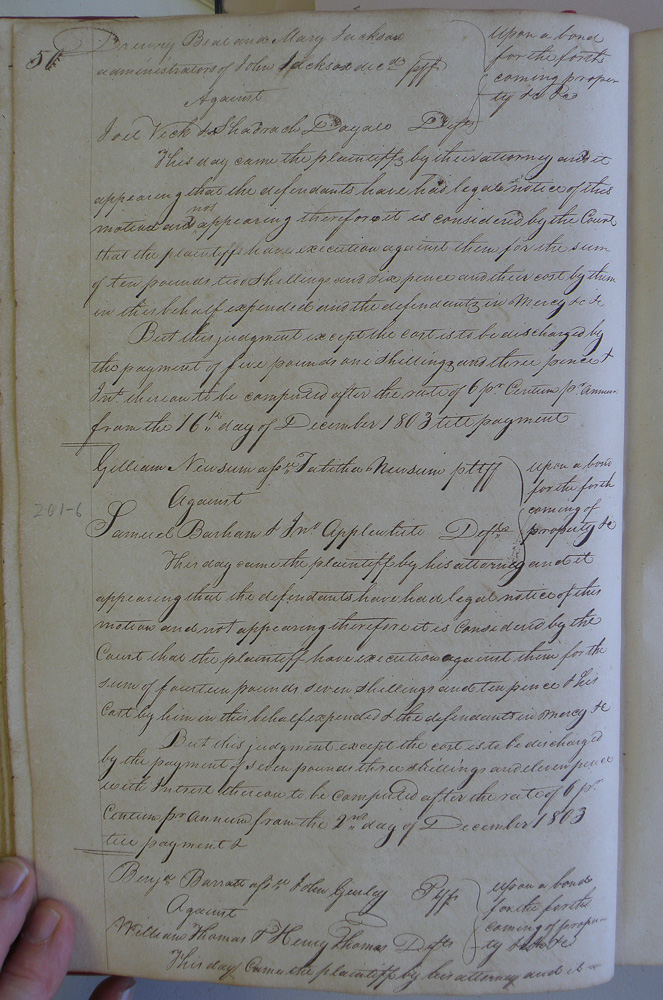 50
Drewry Beal and Mary Jackson
administrators of John Jackson decd ptffs
Against
Joel Vick & Shadrach Dayalo Defts
upon a bond
for the forth
coming proper
ty &c &c
This day came the plaintiffs by their attorney and it
appearing that the defendants have had legal notice of this
motion and not appearing therefore it is considered by the Court
that the plaintiffs have execution against them for the sum
of ten pounds two shillings and six pence and their cost by them
in this behalf expended and the defendants in Mercy &c &c
But this judgment except the cost is to be discharged by
the payment of five pounds one shillings and three pence &
Int. thereon to be computed after the rate of 6 pr Centum pr annum
from the 16th day of December 1803 till payment
Gilliam Newsum assee Tabitha Newsum ptff
Against
Samuel Barham & Jno Applewhite Defts
upon a bond
for the forth
coming of
property &c
201-6
This day came the plaintiff by his attorney and it
appearing that the defendants have had legal notice of this
motion and not appearing therefore it is Considered by the
Court that the plaintiff have execution against them for the
sum of fourteen pounds seven shillings and ten pence & his
Cost by him in this behalf expended & the defendants in mercy &c
But this judgment except the cost is to be discharged
by the payment of seven pounds three shillings and eleven pence
with Interest thereon to be Computed after the rate of 6 pr
Centum pr Annum from the 2nd day of December 1803
till payment &
Benja Barratt assee John Gurley Ptff
Against
William Thomas & Henry Thomas Defts
upon a bond
for the forth
coming of proper
ty &c &c
This day Came the plaintiff by his attorney and it